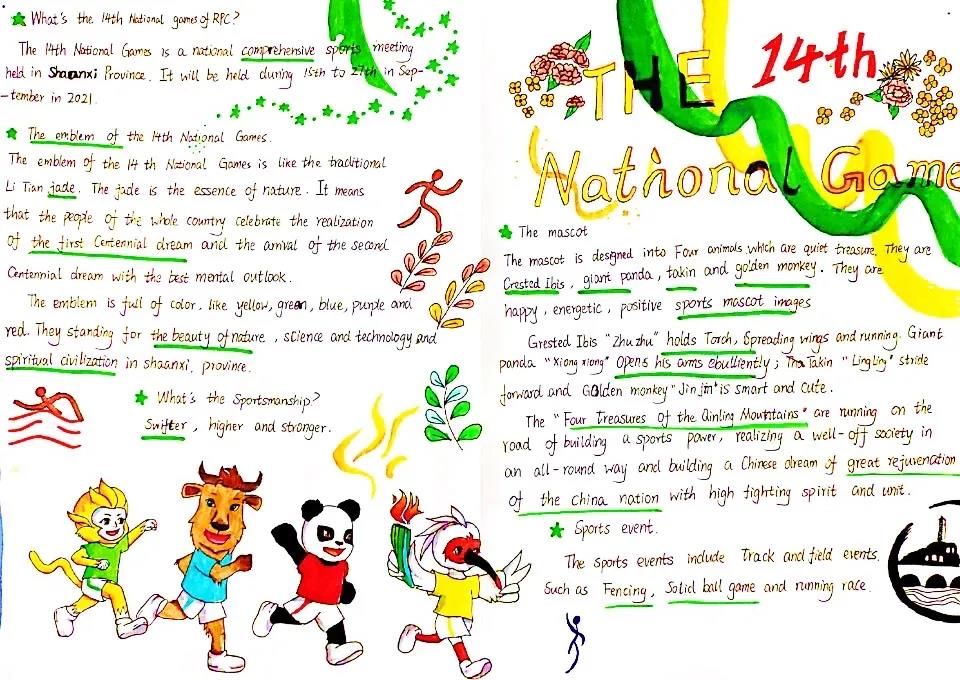 What's the 14th National games of RPC?
The 14th National Games is a national comprehensive sports meeting
held in Shaanxi Province. It will be held during 15th to 27th in Sep-
-tember in 2021.
The emblem of the 14th National Games.
The emblem of the 14 th National Games is like the traditional
Li Tian jade. The jade is the essence of nature. It means
that the people of the whole country celebrate the realization
of the first Centennial dream and the arrival of the second
Centennial dream with the best mental outlook.
The emblem is full of color, like yellow, green, blue, purple and
red. They standing for the beauty of nature, science and technology and
spiritual civilization in shaanxi, province.
What's the Sportsmanship?
Swifter, higher and stronger.
THE 14th
National Game
The mascot
The mascot is designed into Four animals which are quiet treasure. They are
Crested Ibis, giant panda, takin and golden monkey. They are
happy, energetic, positive sports mascot images
Grested Ibis "Zhu zhu" holds Torch, Spreading wings and running. Giant
panda "Xiong xiong" Opens his arms ebulliently; The Takin "Ling Ling" stride
forward and Golden monkey "Jin jin" is smart and cute.
The "Four Treasures Of the Qinling Mountains" are running on the
road of building a sports power, realizing a well-off society in
an all-round way and building a Chinese dream of great rejuvenation
of the china nation with high fighting spirit and unit.
Sports event.
The sports events include Track and field events.
Such as Fencing, Solid ball game and running race.